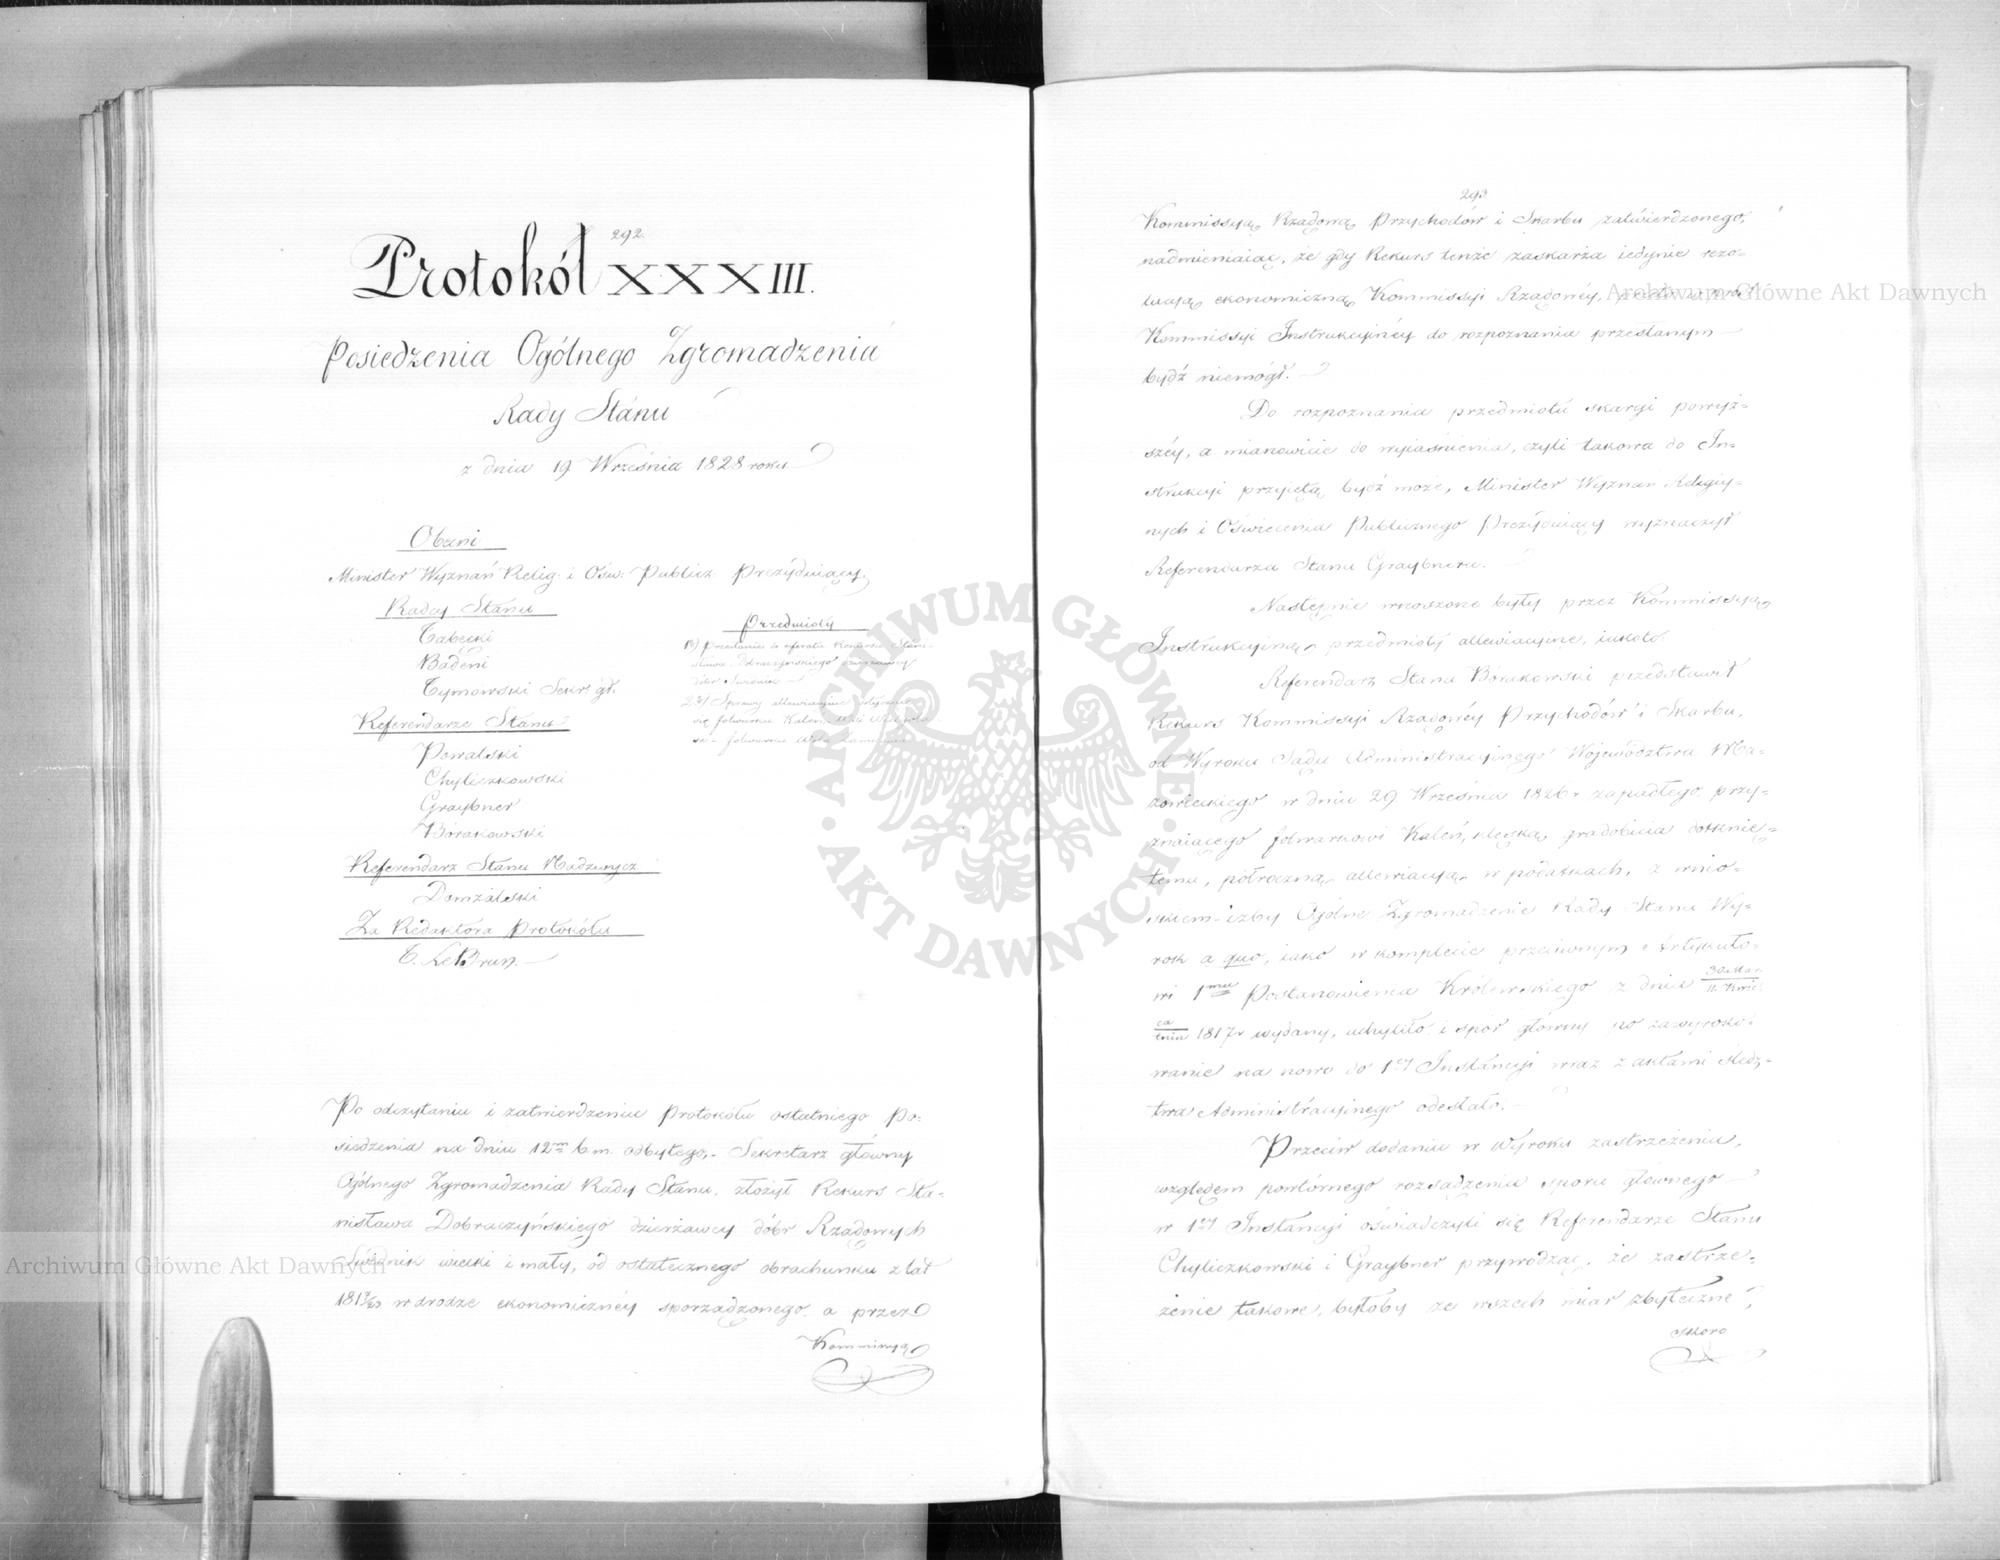 292.
Protokół XXXIII.
Posiedzenia Ogólnego Zgromadzenia
Rady Stanu
z dnia 19 Września 1828 roku
Obecni
Minister Wyznań Relig: i Ośw: Publicz: Prezydujący.
Radcy Stanu
Łabęcki
Badeni
Tymowski Sekr: gł:
Referendarze Stanu
Powalski
Chyliczkowski
Graybner
Borakowski
Referendarz Stanu Nadzwycz:
Domżalski
Za Redaktora Protokółu
T. Le Brun.
Przedmioty
1) Przesłanie do referatu Rekursu Stani-
sława Dobraczyńskiego dzierżawcy
dóbr
2) Sprawy allewiacyjne
się folwarku Kaleń,
folwarku
Po odczytaniu i zatwierdzeniu Protokółu ostatniego Po-
siedzenia na dniu 12 b. m. odbytego, Sekretarz główny
Ogólnego Zgromadzenia Rady Stanu, złożył Rekurs Sta-
nisława Dobraczyńskiego dzierżawcy dóbr Rządowych
wielki i mały, od ostatecznego obrachunku z lat
w drodze ekonomicznéy sporządzonego, a przez
Kommissyą
293.
Kommissyą Rządową Przychodów i Skarbu zatwierdzonego,
nadmieniaiąc, że gdy Rekurs tenże zaskarża iedynie rezo-
lucyą ekonomiczną Kommissyi Rządowéy,
Kommissyi Instrukcyinéy do rozpoznania przesłanym
bydź niemógł.
Do rozpoznania przedmiotu skargi powyż-
széy, a mianowicie do wyiaśnienia, czyli takowa do In-
strukcyi przyjętą bydź może, Minister Wyznań Religiy-
nych i Oświecenia Publicznego Prezydujący wyznaczył
Referendarza Stanu Graybnera.
Następnie wnoszone były przez Kommissyą
Instrukcyiną przedmioty allewiacyine, iakoto:
Referendarz Stanu Borakowski przedstawił
Rekurs Kommissyi Rządowéy Przychodów i Skarbu,
od Wyroku Sądu Administracyinego Województwa Ma-
zowieckiego w dniu 29 Września 1826 r zapadłego, przy-
znaiącego folwarkowi Kaleń, klęską gradobicia dotknię-
temu, półroczną allewiacyą w podatkach, z wnio-
skiem izby Ogólne Zgromadzenie Rady Stanu Wy-
rok a quo, iako w komplecie przeciwnym Artykuło-
wi 1mu Postanowienia Królewskiego z dnia 30 Mar/11 Kwie
ca/tnia 1817 r wydany, uchyliło, i spór główny po zawyroko-
wanie na nowo do 1éy Instancyi wraz z aktami śledz-
twa Administracyinego odesłało.
Przeciw dodaniu w Wyroku zastrzeżeniu,
względem powtórnego rozsądzenia sporu głównego
w 1éy Instancyi oświadczyli się Referendarze Stanu
Chyliczkowski i Graybner przywodząc, że zastrze-
żenie takowe, byłoby ze wszech miar zbyteczne,
skoro
Archiwum Główne Akt Dawnych
Archiwum Główne Akt Dawnych
ARCHIWUM GŁÓWNE
AKT DAWNYCH